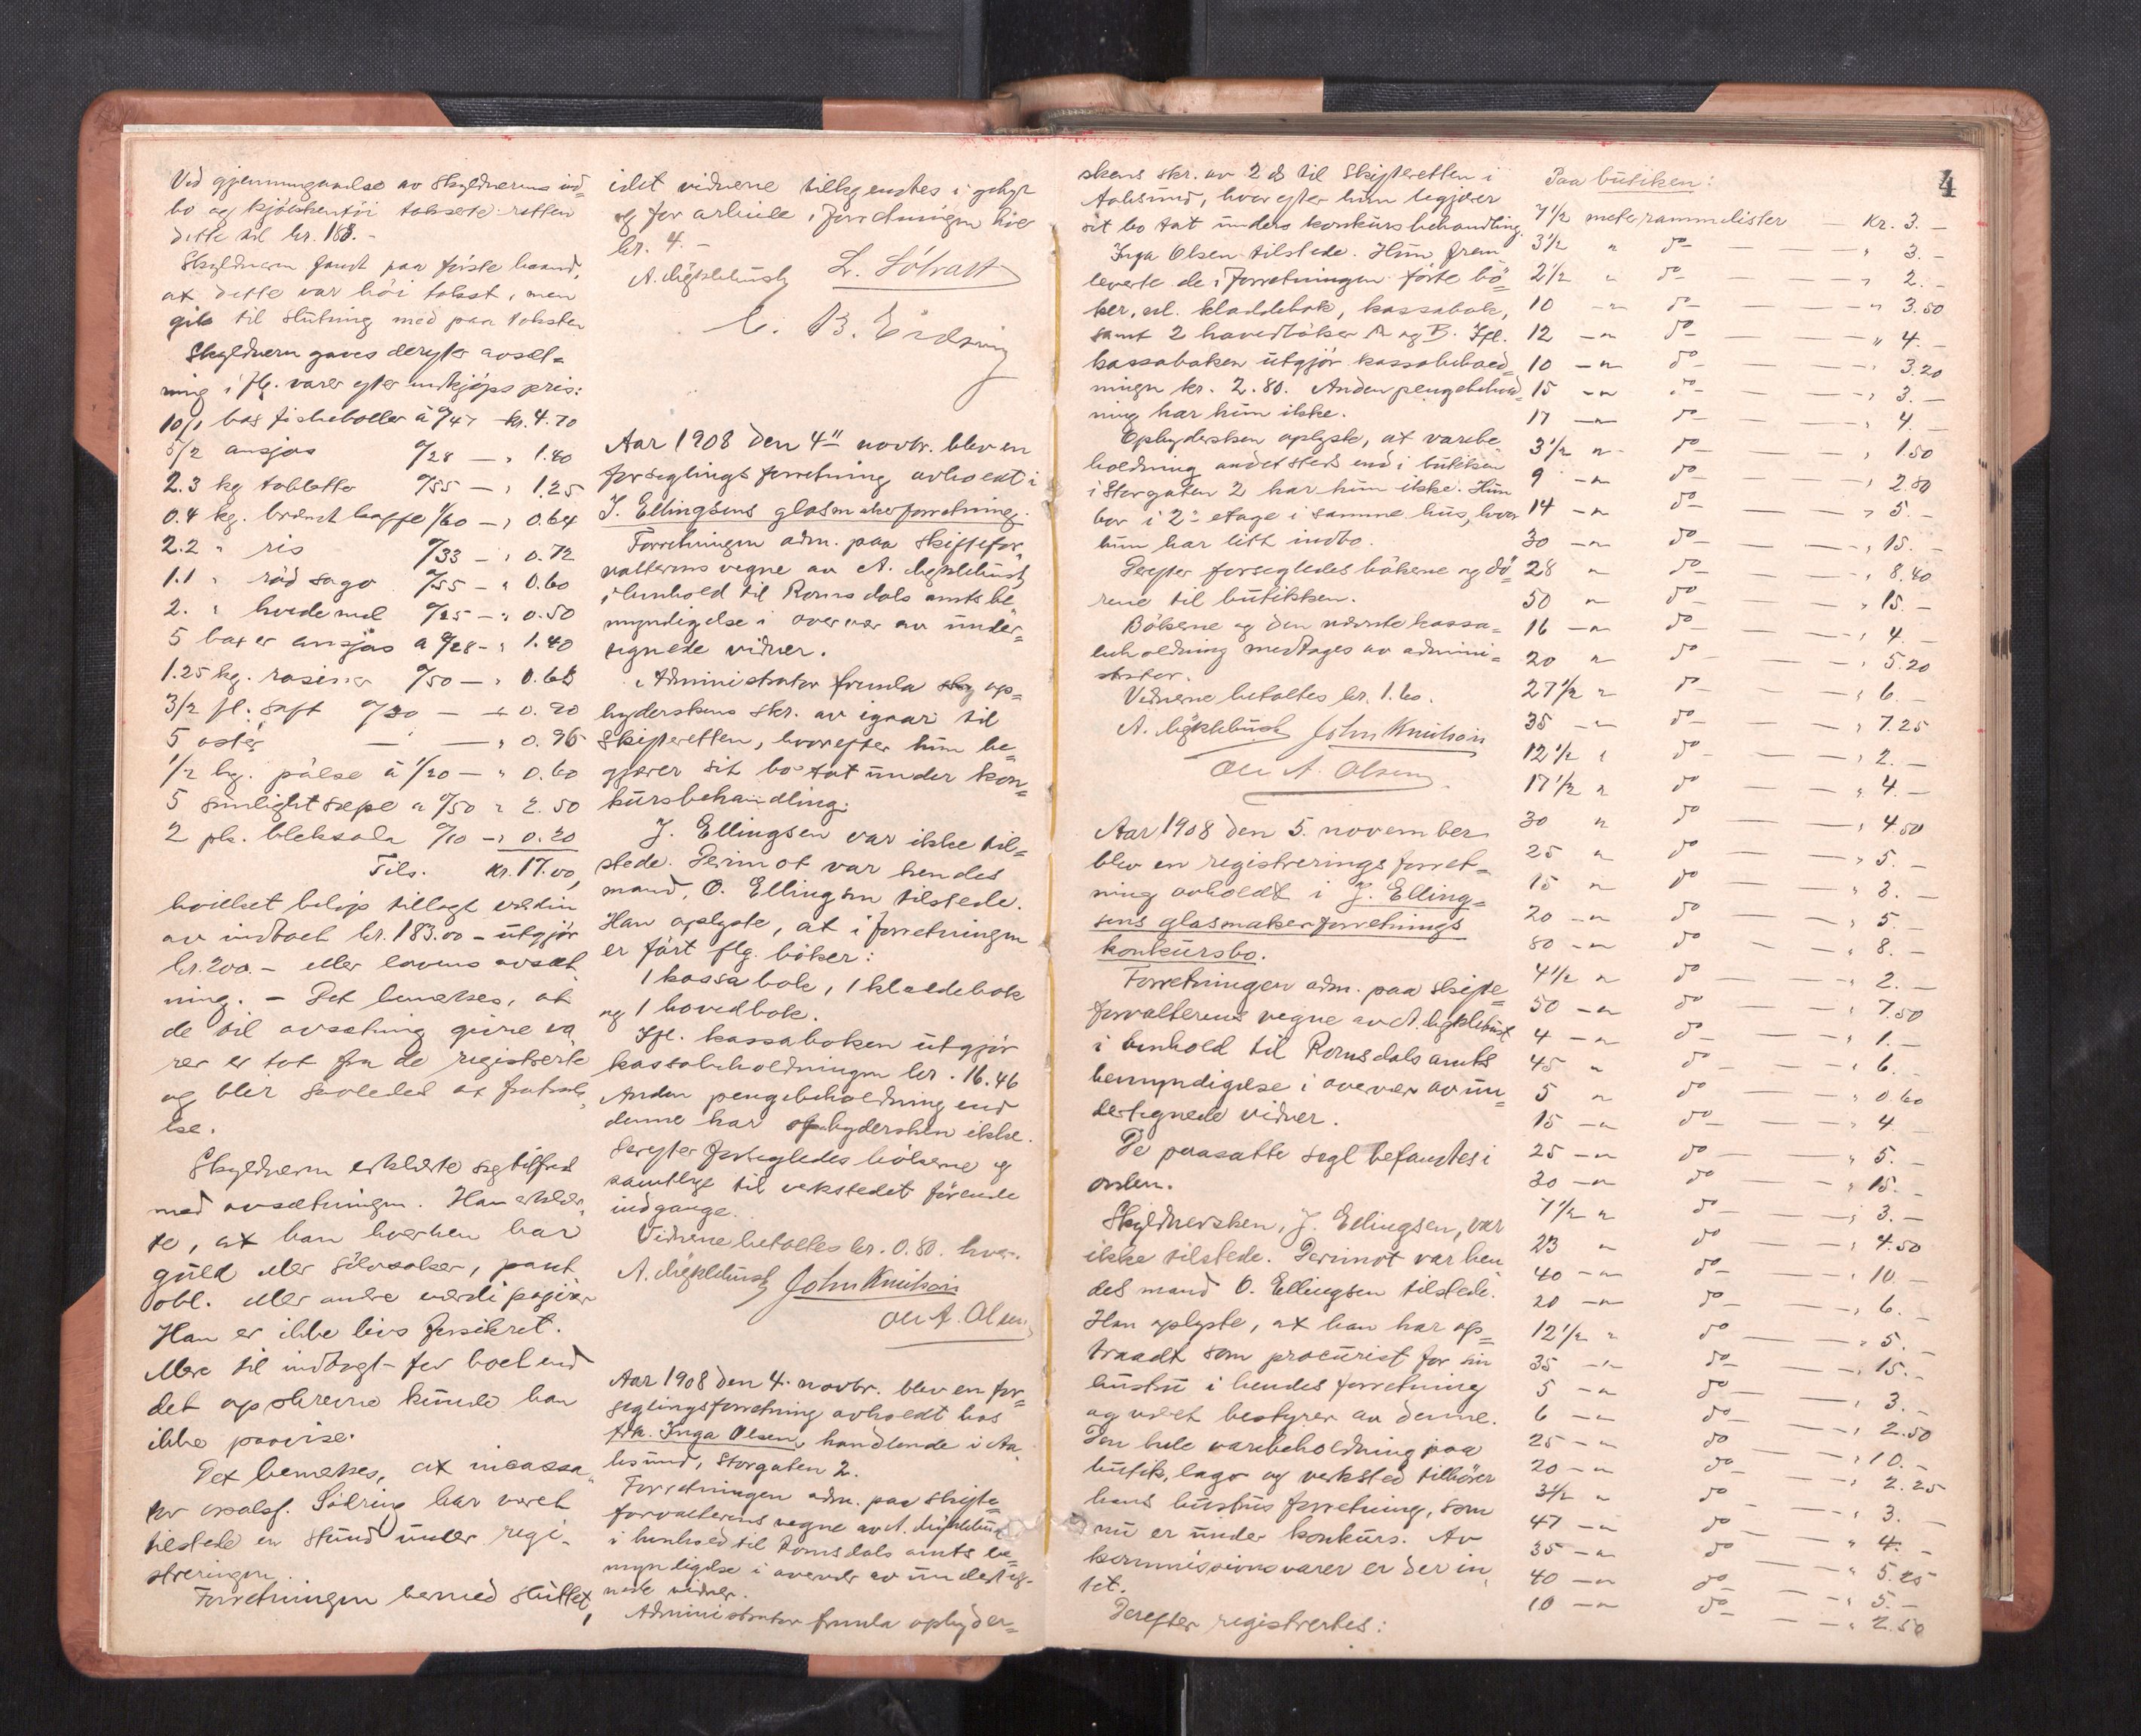 Ved gjennemgaaelse av skyldnerens ind=
bo og kjökkentöi takserte retten
dette til kr. 183.-
Skyldneren fandt paa förste haand,
at dette var höi takst, men
gik til slutning med paa taksten
Skyldneren gaves derefter avsæt=
ning i flg. varer efter indkjöps pris:
10/1 bos fiskeboller à 0/47 - kr. 4.70
5/2 ansjos 0/28 — " 1.40
2.3 kg tabletter 0/55 — " 1.25
0.4 kg. brændt kaffe 1/60 — " 0.64
2.2 " ris 0/33 — " 0.72
1.1 " röd sago 0/55 — " 0.60
2. " hvedemel 0/25 — " 0.50
5 bokser ansjos a 0/28 - " 1.40
1.25 kg. rosiner 0/50 — " 0.63
3/2 fl. saft 0/30 — " 0.90
5 oster — " — " 0.96
1/2 kg. pölse à 1/20 — " 0.60
5 sunlight sæpe a 0/50 " 2.50
2 pk. bleksoda 0/10 — " 0.20
Tils. kr. 17.00,
hvilket belöp tillagt værdien
av indboet kr. 183.00 - utgjör
kr. 200.- eller lovens avsæt
ning. - Det bemerkes, at
de til avsætning givne va
rer er tat fra de registrerte
og blir saaledes at fratræk
ke.
Skyldneren erklærte sig tilfreds
med avsætningen. Han erklær
te, at han hverken har
guld eller sölvsaker, pant
obl. eller andre værdipapirer
Han er ikke livsforsikret.
Mere til indtægt for boet end
det opskrevne kunde han
ikke paavise.
Det bemerkes, at incassa
tor Sölring har været
tilstede en stund under regi-
streringen.
Forretningen hermed sluttet,
idet vidnerne tilkjendtes i gebyr
og for arbeide i forretningen hver
kr. 4.-
A. Myklebust L. Solvast
C. B.
Aar 1908 den 4" novbr. blev en
forseglingsforretning avholdt i
J. Ellingsens glasmakerforretning.
Forretningen adm. paa skiftefor=
valterens vegne av A. Myklebust
i henhold til Romsdals amts be
myndigelse i overvær av under=
tegnede vidner.
Administrator fremla op=
byderskens skr. av igaar til
Skifteretten, hvorefter hun be=
gjærer sit bo tat under kon=
kursbehandling.
J. Ellingsen var ikke til=
stede. Derimot var hendes
mand, O. Ellingsen tilstede.
Han oplyste, at i forretningen
er fört flg. böker:
1 kassabok, 1 kladdebok
og 1 hovedbok.
Ifl. kassaboken utgjör
kassabeholdningen kr. 16.46
Anden pengebeholdning end
denne har opbydersken ikke.
Derefter forsegledes bökerne og
samtlige til verkstedet förende
indgange.
Vidnerne betaltes kr. 0.80. hver.
A. Myklebust John Knutson
Ole A. Olsen
Aar 1908 den 4. novbr. blev en for=
seglingsforretning avholdt hos
frk. Inga Olsen, handlende i Aa
lesund, Storgaten 2.
Forretningen adm. paa skifte=
forvalterens vegne av A. Myklebust
i henhold til Romsdals amts be=
myndigelse i overvær av underteg-
nede vidner.
Administrator fremla opbyder=
skens skr. av 2 ds til Skifteretten i
Aalesund, hvorefter hun begjærer
sit bo tat under konkursbehandling.
Inga Olsen tilstede. Hun frem
leverte de i forretningen förte bö=
ker, nl. kladdebok, kassabok,
samt 2 hovedböker A og B. Ifl.
kassaboken utgjör kassabehold=
ningen kr. 2.80. Anden pengebehold=
ning har hun ikke.
Opbydersken oplyste, at varebe
holdning andetsteds end i butiken
i Storgaten 2 har hun ikke. Hun
bor i 2den etage i samme hus, hvor
hun har litt indbo.
Derefter forsegledes bökerne og dö=
rene til butikken.
Bökerne og den nævnte kassa=
beholdning medtages av admini=
strator.
Vidnerne betaltes kr. 1.60.
A. Myklebust John Knutson
Ole A. Olsen
Aar 1908 den 5. november
blev en registreringsforret=
ning avholdt i J. Elling=
sens glasmakerforretnings
konkursbo.
Forretningen adm. paa skifte=
forvalterens vegne av A. Myklebust
i henhold til Romsdals amts
bemyndigelse i overvær av un=
dertegnede vidner.
De paasatte segl befandtes i
orden.
Skyldnersken, J. Ellingsen, var
ikke tilstede. Derimot var hen
des mand O. Ellingsen tilstede.
Han oplyste, at han har op=
traadt som procurist for sin
hustru i hendes forretning
og været bestyrer av denne.
Den hele varebeholdning paa
butik, lager og verksted tilhörer
hans hustrus forretning, som
nu er under konkurs. Av
kommissionsvarer er der in
tet.
Derefter registrertes:
4
Paa butiken:
7 1/2 meter rammelister — kr. 3.—
3 1/2 " do — — " 3.-
2 1/2 " do — — " 2.-
10 - " do — — " 3.50
12 - " do — — " 4.-
10 - " do — — " 3.20
15 - " do — — " 3.—
17 - " do — — " 4.—
3 1/2 " do — — " 1.50
9 - " do — — " 2.80
14 - " do — — " 5.-
30 - " do — — " 15.-
28 " do — — " 8.40
50 " do — — " 15.-
16 - " do — — " 4.-
20 " do — — " 5.20
27 1/2 " do — — " 6.-
35 - " do — — " 7.25
12 1/2 " do — — " 2.—
17 1/2 " do — — " 4.—
30 " do — — " 4.50
25 " do — — " 5.-
15 " do — — " 3.-
20 - " do — — " 5.-
80 - " do — — " 8.-
4 1/2 " do — — " 2.-
50 - " do — — " 7.50
4 - " do — — " 1.-
45 " do — — " 6.-
5 " do — — " 0.60
15 - " do — — " 4.-
25 - " do — — " 5.-
30 - " do — — " 15.-
7 1/2 " do — — " 3.—
23 " do — — " 4.50
40 - " do — — " 10.-
20 - " do — — " 6.-
12 1/2 " do — — " 5.-
35 - " do — — " 15.-
5 - " do — — " 3.-
6 - " do — — " 2.50
25 - " do — — " 10.-
20 - " do — — " 2.25
3 1/2 " do — — " 3.-
47 - " do — — " 4.-
35 - " do — — " 5.25
40 - " do — — " 5.-
10 - " do — — " 2.50